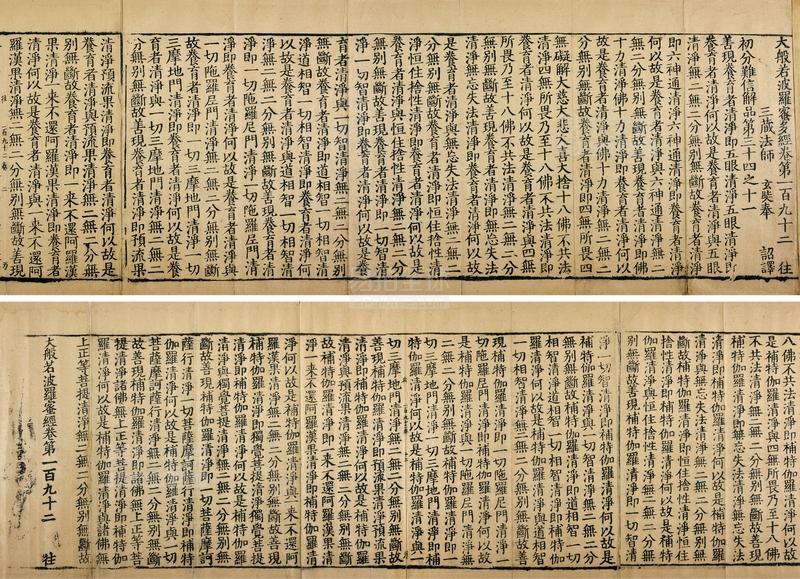 大般若波羅蜜多經卷第一百九十二 往
三藏法師 玄奘奉 詔譯
初分難信解品第三十四之十一
善現養育者清淨即五眼清淨五眼清淨即
養育者清淨何以故是養育者清淨與五眼
清淨無二無二分無別無斷故養育者清淨
即六神通清淨六神通清淨即養育者清淨
何以故是養育者清淨與六神通清淨無二
無二分無別無斷故善現養育者清淨即佛
十力清淨佛十力清淨即養育者清淨何以
故是養育者清淨與佛十力清淨無二無二
分無別無斷故養育者清淨即四無所畏四
無礙解大慈大悲大喜大捨十八佛不共法
清淨四無所畏乃至十八佛不共法清淨即
養育者清淨何以故是養育者清淨與四無
所畏乃至十八佛不共法清淨無二無二分
無別無斷故善現養育者清淨即無忘失法
清淨無忘失法清淨即養育者清淨何以故
是養育者清淨與無忘失法清淨無二無二
分無別無斷故養育者清淨即恒住捨性清
淨恒住捨性清淨即養育者清淨何以故是
養育者清淨與恒住捨性清淨無二無二分
無別無斷故善現養育者清淨即一切智清
淨一切智清淨即養育者清淨何以故是養
育者清淨與一切智清淨無二無二分無別
無斷故養育者清淨即道相智一切相智清
淨道相智一切相智清淨即養育者清淨何
以故是養育者清淨與道相智一切相智清
淨無二無二分無別無斷故善現養育者清
淨即一切陀羅尼門清淨一切陀羅尼門清
淨即養育者清淨何以故是養育者清淨與
一切陀羅尼門清淨無二無二分無別無斷
故養育者清淨即一切三摩地門清淨一切
三摩地門清淨即養育者清淨何以故是養
育者清淨與一切三摩地門清淨無二無二
分無別無斷故善現養育者清淨即預流果
清淨預流果清淨即養育者清淨何以故是
養育者清淨與預流果清淨無二無二分無
別無斷故養育者清淨即一來不還阿羅漢
果清淨一來不還阿羅漢果清淨即養育者
清淨何以故是養育者清淨與一來不還阿
羅漢果清淨無二無二分無別無斷故善現
八佛不共法清淨即補特伽羅清淨何以故
是補特伽羅清淨與四無所畏乃至十八佛
不共法清淨無二無二分無別無斷故善現
補特伽羅清淨即無忘失法清淨無忘失法
清淨即補特伽羅清淨何以故是補特伽羅
清淨與無忘失法清淨無二無二分無別無
斷故補特伽羅清淨即恒住捨性清淨恒住
捨性清淨即補特伽羅清淨何以故是補特
伽羅清淨與恒住捨性清淨無二無二分無
別無斷故善現補特伽羅清淨即一切智清
淨一切智清淨即補特伽羅清淨何以故是
補特伽羅清淨與一切智清淨無二無二分
無別無斷故補特伽羅清淨即道相智一切
相智清淨道相智一切相智清淨即補特伽
羅清淨何以故是補特伽羅清淨與道相智
一切相智清淨無二無二分無別無斷故善
現補特伽羅清淨即一切陀羅尼門清淨一
切陀羅尼門清淨即補特伽羅清淨何以故
是補特伽羅清淨與一切陀羅尼門清淨無
二無二分無別無斷故補特伽羅清淨即一
切三摩地門清淨一切三摩地門清淨即補
特伽羅清淨何以故是補特伽羅清淨與一
切三摩地門清淨無二無二分無別無斷故
善現補特伽羅清淨即預流果清淨預流果
清淨即補特伽羅清淨何以故是補特伽羅
清淨與預流果清淨無二無二分無別無斷
故補特伽羅清淨即一來不還阿羅漢果清
淨一來不還阿羅漢果清淨即補特伽羅清
淨何以故是補特伽羅清淨與一來不還阿
羅漢果清淨無二無二分無別無斷故善現
補特伽羅清淨即獨覺菩提清淨獨覺菩提
清淨即補特伽羅清淨何以故是補特伽羅
清淨與獨覺菩提清淨無二無二分無別無
斷故善現補特伽羅清淨即一切菩薩摩訶
薩行清淨一切菩薩摩訶薩行清淨即補特
伽羅清淨何以故是補特伽羅清淨與一切
菩薩摩訶薩行清淨無二無二分無別無斷
故善現補特伽羅清淨即諸佛無上正等菩
提清淨諸佛無上正等菩提清淨即補特伽
羅清淨何以故是補特伽羅清淨與諸佛無
上正等菩提清淨無二無二分無別無斷故
大般若波羅蜜經卷第一百九十二 往